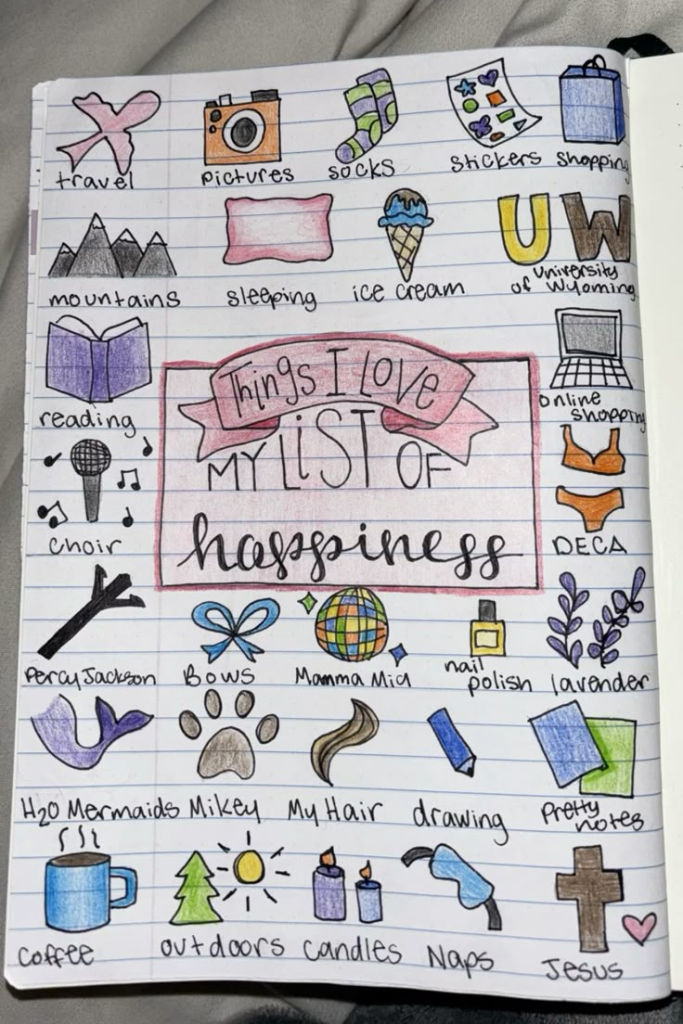 travel
pictures
socks
stickers
shopping
mountains
sleeping
ice cream
UW
university
of Wyoming
reading
Things I Love
MY LiST OF
happiness
online
shopping
choir
DECA
Percy Jackson
Bows
Mamma Mia
nail
polish
lavender
H2O Mermaids
Mikey
My Hair
drawing
Pretty
notes
Coffee
outdoors
Candles
Naps
Jesus